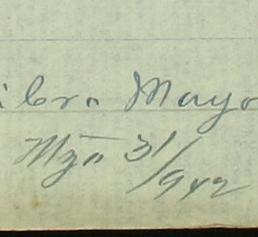 ibra Mayo
Myo 31/942